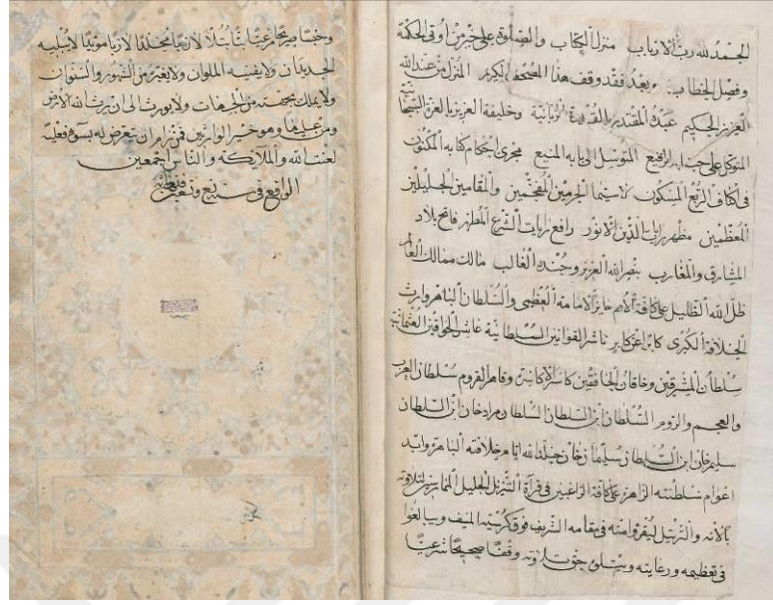 الحمد لله رب الارباب منزل الكتاب والصلوة على خير من اوتى الحكمة
وفصل الخطاب وبعد فقد وقف هذا المصحف الكريم المنزل من عند الله
العزيز الحكيم عبده المقتدر بالقدرة الربانية وخليفة العزيز بالعزة السبحانية
المتوكل على جنابه الرفيع المتوسل الى بابه المنيع مجرى احكام كتابه المكنون
فى اكناف الربع المسكون لا سيما الحرمين المفخمين والمقامين الجليلين
المعظمين مظهر رايات الدين الانور رافع رايات الشرع المطهر فاتح بلاد
المشارق والمغارب بنصر الله العزيز وجنده الغالب مالك ممالك العالم
ظل الله الظليل على كافة الامم حايز الامامة العظمى والسلطان الباهر وارث
الخلافة الكبرى كابرا عن كابر ناشر القوانين السلطانية عاشر الخواقين العثمانية
سلطان المشرقين وخاقان الخافقين كاسر الاكاسرة وقاهر القروم سلطان العرب
والعجم والروم السلطان ابن السلطان السلطان مراد خان ابن السلطان
سليم خان ابن السلطان سليمان خان خلد الله ايام خلافته الباهرة وابد
اعوام سلطنته الزاهرة على كافة الراغبين فى قراة التنزيل الجليل الممارسين لتلاوته
بالانه والترتيل ليقروا منه فى مقامه الشريف فوق كرسيه المنيف ويبالغوا
فى تعظيمه ورعايته ويتلوه حق تلاوته وقفا صحيحا شرعيا
وحبسا صريحا مرعيا بتا بتلا لازبا مخلدا لازما مؤبدا لا يبليه
الجديدان ولا يفنيه الملوان ولا يغيره من الشهور والسنوات
ولا يملك بجهة من الجهات ولا يورث الى ان يرث الله الارض
ومن عليها وهو خير الوارثين فمن رام ان يتعرض له بسوء فعليه
لعنت الله والملايكة والناس اجمعين
الواقع فى سنة